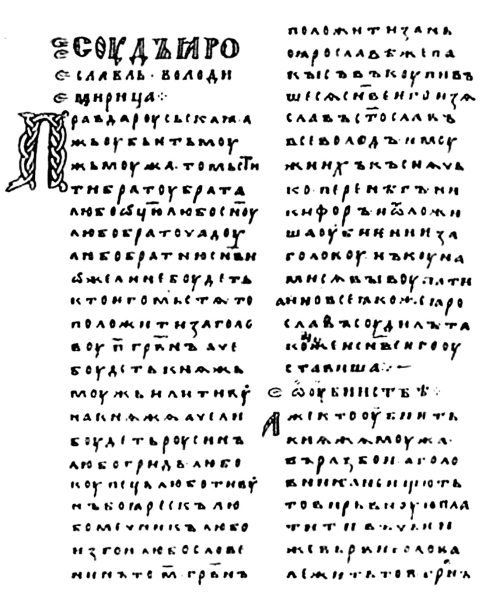 СОУДЪ ꙖРО
СЛАВЛЬ · ВОЛОДИ
МИРИЦА ⁘
Правда роусьскаꙗ · а
жь оубьѥть моу
жь моужа · то мьсти
ти братоу брата
любо ѿцю · любо сн҃оу
любо братоучадоу
ли бо братню сн҃ви
ѡже ли не боудеть
кто ѥго мьстѧ то
положити за голо
воу п҃ грвн҃ъ аче
боудеть кнѧжь
моужь или тивоу
на кнѧжѧ аче ли
боудеть роусинъ
любо гридь · любо
коупець любо тивоу
нъ боꙗрескъ лю
бо мечникъ любо
изгои любо слове
нинъ то м҃ грвн҃ъ
положити за нь
по ꙗрославѣ же па
кы съвъкоупивъ
шесѧ сн҃ве ѥго изѧ
славъ ст҃ославъ
всеволодъ и моу
жи ихъ къснѧчь
ко перенѣгъ ни
кифоръ · и ѿложи
ша оубиениѥ за
головоу нъ коуна
ми сѧ выкоупати
а ино всѧ ꙗкоже ꙗро
славъ соудилъ та
коже и сн҃ве ѥго оу
ставиша ⁘
ѡ оубииствѣ ⁘
Аже кто оубиѥть
кнѧжѧ моужа
въ разбои а голо
вника не ищють
то вирьвноую пла
тити въ чьѥи
же вьрви голова
лежить то п҃ грвн҃ъ